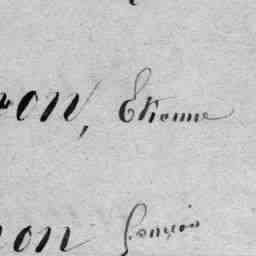 ron, Etienne
non François